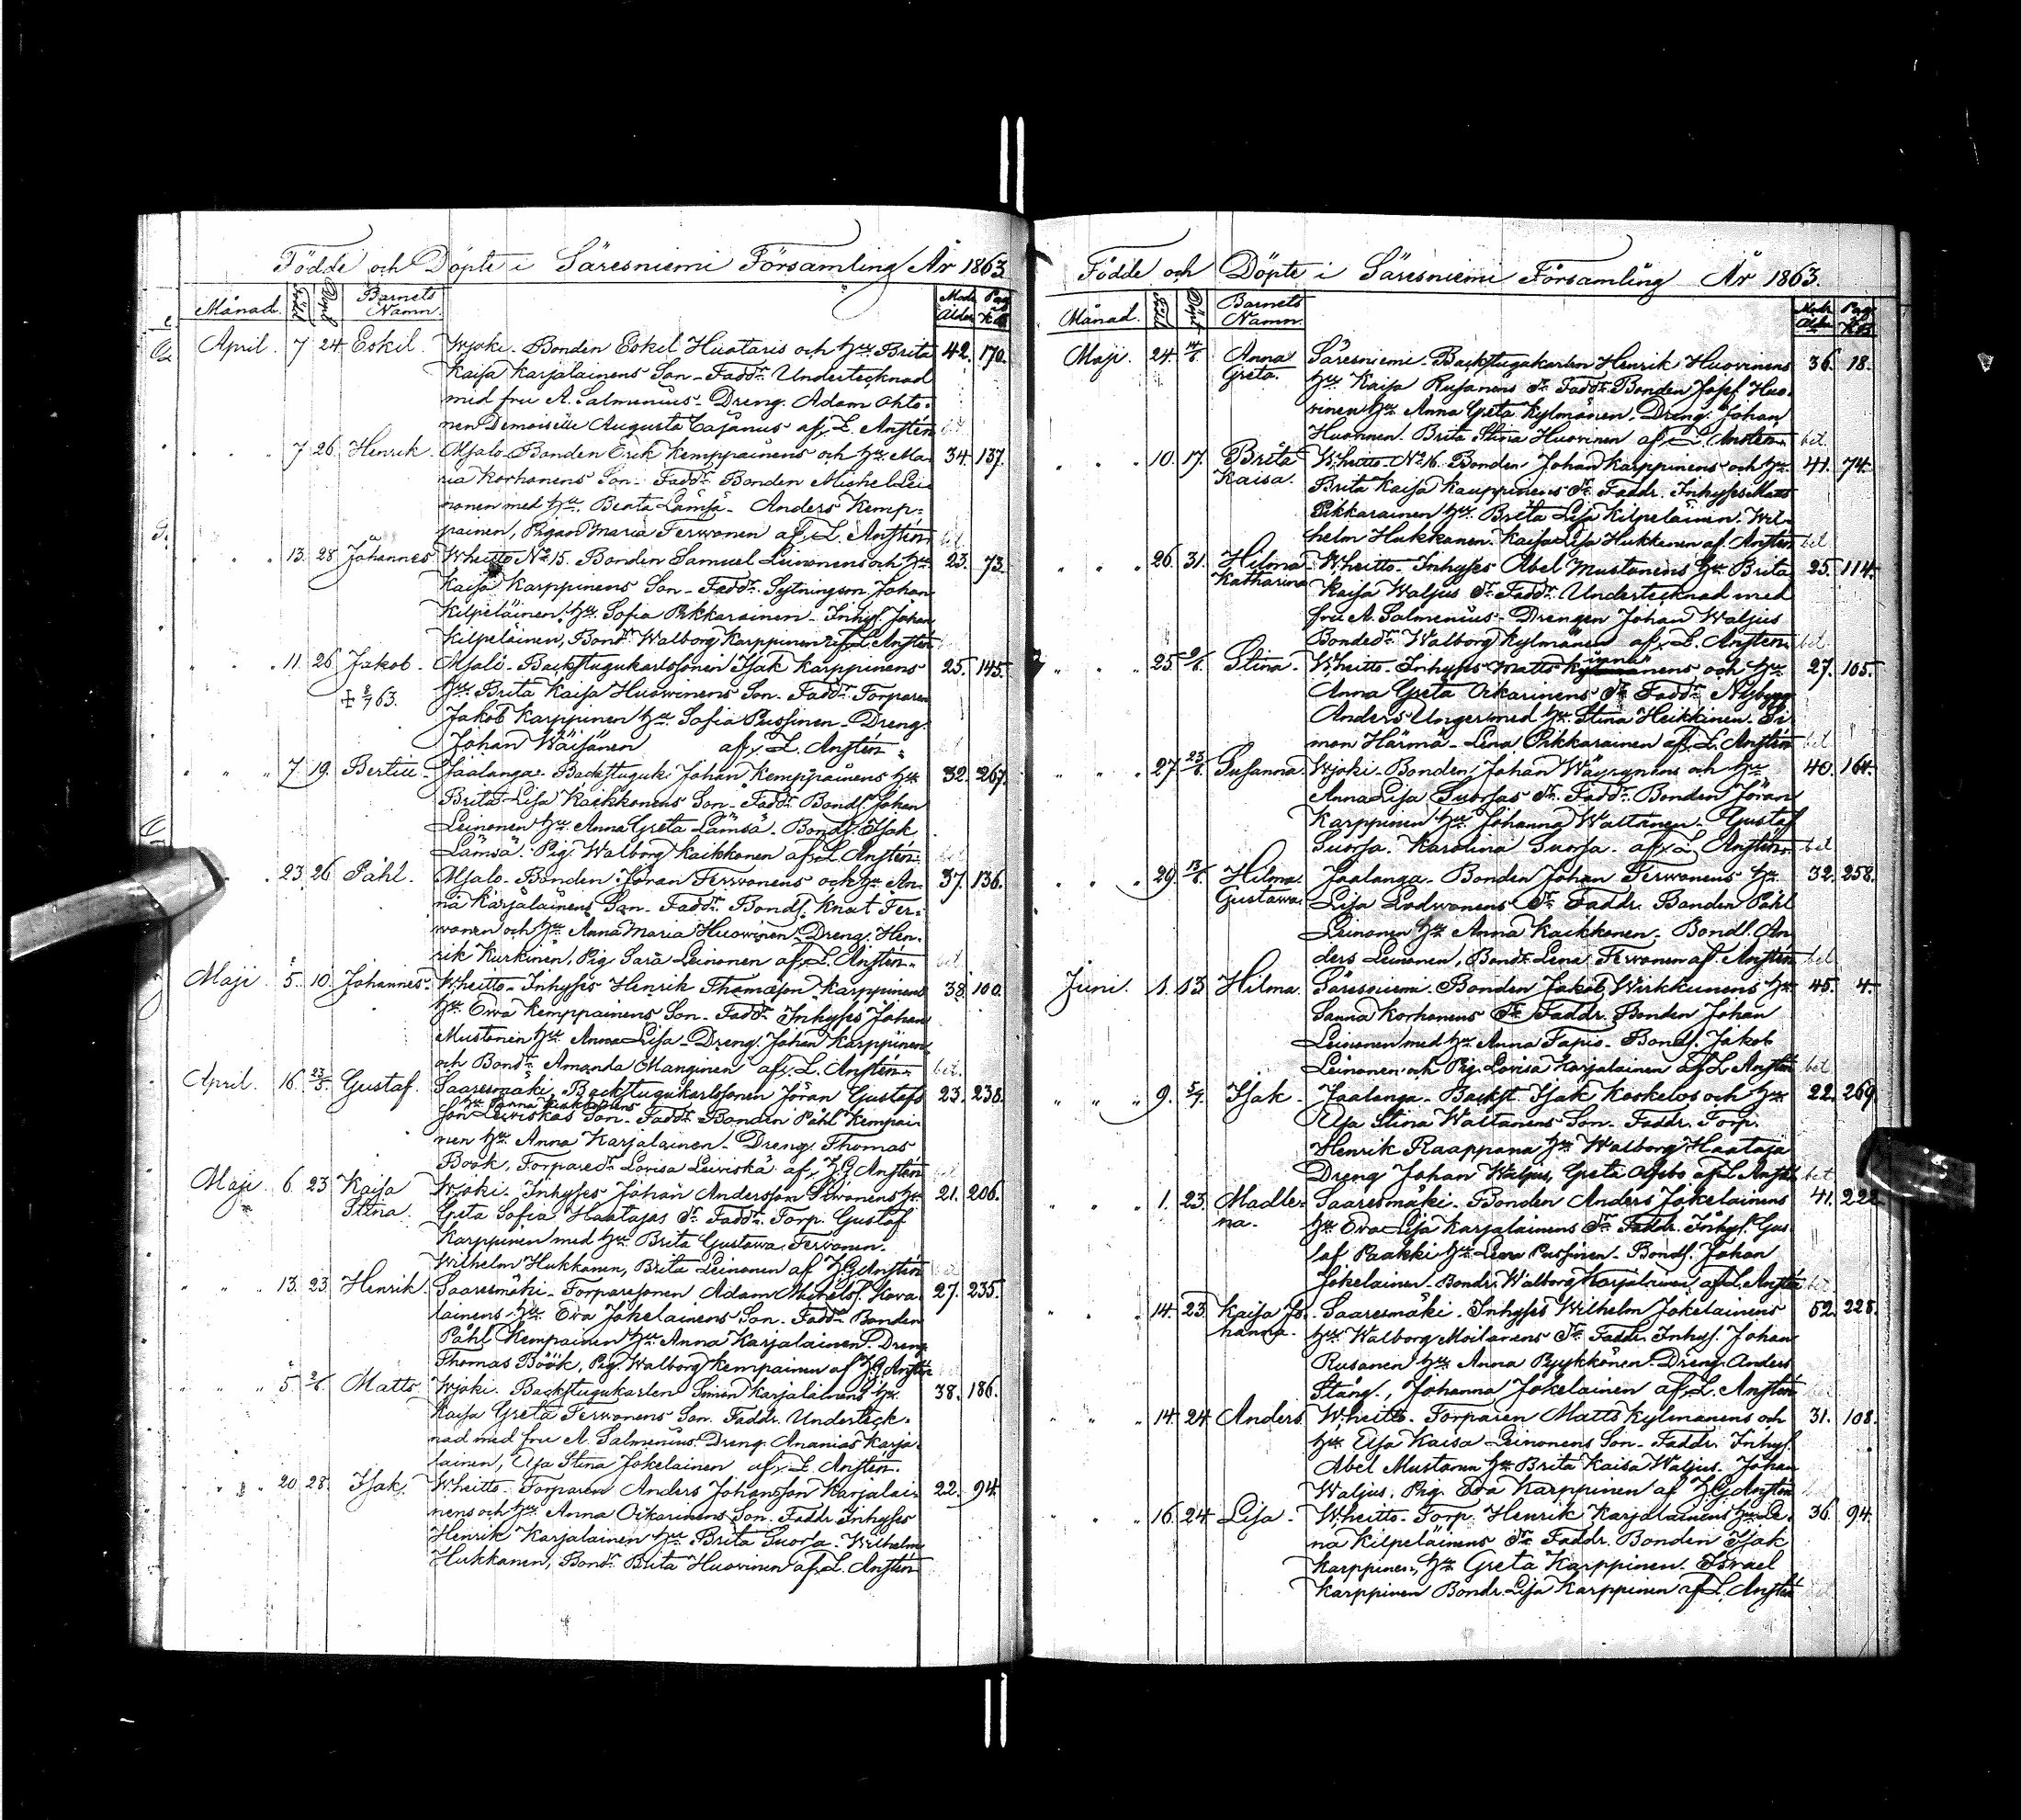 Födde och Döpte i Säresniemi Församling År 1863
Månad. Född Döpt Barnets Namn. Mods Alder Pag. K.B.
April. 7 24 Eskil. Wjoki. Bonden Eskil Huotaris och Hu Brita 42. 170.
Kaisa Karjalainens Son - Faddr. Undertecknad
med fru A. Salmenius - Dreng. Adam Ohto-
nen Demoiselle Augusta Cajanus af L. Anstén
" 7 26 Henrik. Bonden Erik Kemppainens och Hu Ma- 34. 137.
ria Korhonens Son - Faddr. Bonden Michel Lei-
nonen med Hu Beata Lämsä - Anders Kemp-
painen, Pigan Maria Ferwonen af L. Anstén
" 13. 28 Johannes W,heitto No 15. Bonden Samuel Leinonens och Hu 23. 73.
Kaisa Karppinens Son - Faddr. Sytningsm Johan
Kilpeläinen, Hu Sofia Pikkarainen - Inhys. Johan
Kilpeläinen, Bondr. Walborg Karppinen af L. Anstén
" 11 26 Jakob. Backstugukarlssonen Isak Karppinens 25. 145.
63. Hu Brita Kaisa Huowinens Son. Faddr. Torparen
Jakob Karppinen Hu Sofia Pussinen - Dreng.
Johan Wäisänen af L. Anstén
" 7. 19. Bertill Jaalanga. Backstuguk. Johan Kemppainens Hu 32. 267.
Brita Lisa Kaikkonens Son - Faddr. Bonds. Johan
Leinonen Hu Anna Greta Lämsä - Bonds. Isak
Lämsä. Pig. Walborg Kaikkonen af L. Anstén
" 23. 26 Påhl. Bonden Jöran Ferwonens och Hu An- 37. 136.
na Karjalainens Son - Faddr. Bonds. Knut Fer-
wonen och Hu Anna Maria Huowinen Dreng. Hen-
rik Kurkinen, Pig Sara Leinonen af L. Anstén
Maji 5. 10. Johannes W,heitto - Inhyses Henrik Thomasson Karppinens 38. 100.
Hu Ewa Kemppainens Son - Faddr. Inhyses Johan
Mustonen Hu Anna Lisa - Dreng. Johan Karppinen
och Bondr. Amanda Manginen af L. Anstén
April. 16. 23/5. Gustaf. Saaresmäki, Backstugukarlssonen Jöran Gustafs 23. 238.
son Leiwiskäs Son - Faddr. Bonden Påhl Kempai-
nen Hu Anna Karjalainen. Dreng Thomas
Book, Torparedr. Lovisa Leiviskä af J.G. Anstén
Maji. 6. 23 Kaisa Stina. Wjoki. Inhyses Johan Andersson Hu 21. 206.
Greta Sofia Haatajas Dr. Faddr. Torp. Gustaf
Karppinen med Hu Brita Gustawa Ferwonen.
Wilhelm Hukkanen, Brita Leinonen af J.G. Anstén
" " 13. 23. Henrik. Saaresmäki - Torparesonen Adam Michels. Kova- 27. 235.
lainens Hu Eva Jokelainens Son. Faddr. Bonden
Påhl Kempainen Hu Anna Karjalainen. Dreng
Thomas Böök, Pig. Walborg Kempainen af J.G. Anstén
" " 5. 2/6. Matts Wjoki. Backstugukarlen Simon Karjalainens Hu 38. 186.
Kaisa Greta Ferwonens Son. Faddr. Underteck-
nad med fru A. Salmenius. Dreng. Ananias Karja-
lainen, Stina Jokelainen af L. Anstén.
" " 20. 28. Isak. W,heitto. Torparen Anders Johansson Karjalai- 22. 94.
nens och Hu Anna Oikarinens Son. Faddr. Inhyses
Henrik Karjalainen Hu Brita Suorsa - Wilhelm
Hukkanen, Bondr. Brita Huovinen af L. Anstén
Födde och Döpte i Säresniemi Församling År 1863.
Månad. Född Döpt Barnets Namn. Mods Alder Pag. K.B.
Maji. 24. 14/6. Anna Greta. Säresniemi - Backstugukarlen Henrik Huovinens 36. 18.
Hu Kaisa Rusanens Dr Faddr. Bonden Josef Huo-
vinen Hu Anna Greta Kylmänen, Dreng. Johan
Huovinen. Brita Stina Huovinen af L. Anstén. bet
" " 10. 17. Brita Kaisa W,heitto - No 16. Bonden Johan Karppinens och Hu 41. 74.
Brita Kaisa Kauppinens Dr. Faddr. Inhyses Matts
Pikkarainen Hu Brita Lisa Kilpeläinen. Wil-
helm Hukkanen. Kaisa Lisa Hukkanen af Anstén bet
" " 26. 31. Hilma Katharina W,heitto - Inhyses Abel Mustonens Hu Brita 25. 114.
Kaisa Waljus Dr. Faddr. Undertecknad med
fru A. Salmenius - Drengen Johan Waljus
Bondedr. Walborg Kylmänen af L. Anstén bet
" " 25. 9/6. Stina. W,heitto - Inhyses Matts och Hu 27. 105.
Anna Greta Oikarinens Dr. Faddr. Nybygg.
Anders Unger med Hu Stina Heikkinen. Si-
mon Härmä - Lena Pikkarainen af L. Anstén bet
" " 27 23/6. Susanna. Wjoki - Bonden Johan Wäyrynens och Hu 40. 164.
Anna Lisa Suorsas Dr. Faddr. Bonden Jöran
Karppinen Hu Johanna Waltanen. Gustaf
Suorsa. Karolina Suorsa. af L. Anstén bet
" " 29. 13/6. Hilma Gustawa. Jaalanga - Bonden Johan Ferwonens Hu 32. 258.
Lisa Lodwonens Dr. Faddr. Bonden Påhl
Leinonen Hu Anna Kaikkonen. Bonds. An-
ders Leinonen, Bondr. Lena Ferwonen af Anstén bet
Juni. 1. 13 Hilma. Säresniemi - Bonden Jakob Wirkkunens Hu 45. 4.
Sanna Korhonens Dr. Faddr. Bonden Johan
Leinonen med Hu Anna Tapio - Bonds. Jakob
Leinonen och Pig. Lovisa Karjalainen af L. Anstén bet
" " 9. 5/7. Isak - Jaalanga - Backst. Isak Koskelos och Hu 22. 269.
Stina Waltanens Son - Faddr. Torp.
Henrik Raappana Hu Walborg Haataja
Dreng Johan Waljus, Greta af L. Anstén bet
" " 1. 23. Madle-na. Saaresmäki - Bonden Anders Jokelainens 41. 222
Hu Eva Lisa Karjalainens Dr Faddr. Inhys. Gus-
taf Paakki Hu Lena Pussinen - Bonds. Johan
Jokelainen - Bondr. Walborg Karjalainen af L. Anstén
" " 14. 23 Kaisa Jo-hanna. Saaresmäki. Inhyses Wilhelm Jokelainens 52. 228.
Hu Walborg Moilanens Dr. Faddr. Inhys. Johan
Rusanen Hu Anna Pyykkönen. Dreng Anders
Stång., Johanna Jokelainen af L. Anstén
" " 14. 24 Anders. W,heitto - Torparen Matts Kylmänens och 31. 108.
Hu Kaisa Leinonens Son - Faddr. Inhys.
Abel Mustonen Hu Brita Kaisa Waljus. Johan
Waljus. Pig. Eva Karppinen af J.G. Anstén
" " 16. 24 Lisa - W,heitto - Torp. Henrik Karjalainens Hu Le- 36. 94.
na Kilpeläinens Dr. Faddr. Bonden Isak
Karppinen, Hu Greta Karppinen. Israel
Karppinen Bondr. Lisa Karppinen af L. Anstén